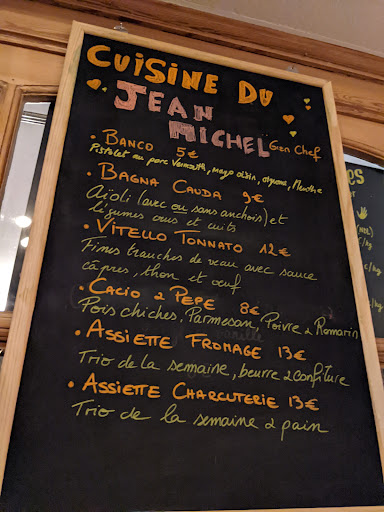 CUISINE DU
JEAN
MICHEL Gen Chef
• BANCO 5€
Pistolet au porc Vermouth, mayo oisin, oignons, Menthe
• BAGNA CAUDA 9€
Aïoli (avec ou sans anchois) et
légumes crus et cuits
• VITELLO TONNATO 12€
Fines tranches de veau avec sauce
câpres, thon et oeuf
• CACIO & PEPE 8€
Pois chiches, Parmesan, Poivre & Romarin
• ASSIETTE FROMAGE 13€
Trio de la semaine, beurre & confiture
• ASSIETTE CHARCUTERIE 13€
Trio de la semaine & pain